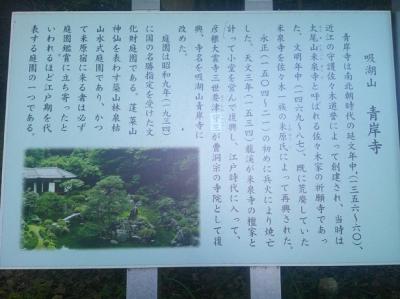 吸湖山　青岸寺
青岸寺は南北朝時代の延文年中(一三五六〜六〇)、
近江の守護佐々木道誉によって創建され、当時は
太尾山米泉寺と呼ばれる佐々木家の祈願寺であっ
た。文明年中(一四六九〜八七)、既に荒廃していた
米泉寺を、佐々木一族の米原氏によって再興された。
永正(一五〇四〜二一)の初めに兵火により焼亡
した。天文三年(一五三四)龍渓が米泉寺の檀家と
計って小堂を営んで復興し、江戸時代に入って、
彦根大雲寺三世要津守三が曹洞宗の寺院として復
興、寺名を吸湖山青岸寺に
改めた。
庭園は昭和九年(一九三四)
に国の名勝指定を受けた文
化財庭園である。蓬莱山
神仙を表わす築山林泉枯
山水式庭園であり、かつ
て米原宿に来る者は必ず
庭園鑑賞に立ち寄ったと
いわれるほど江戸期を代
表する庭園の一つである。